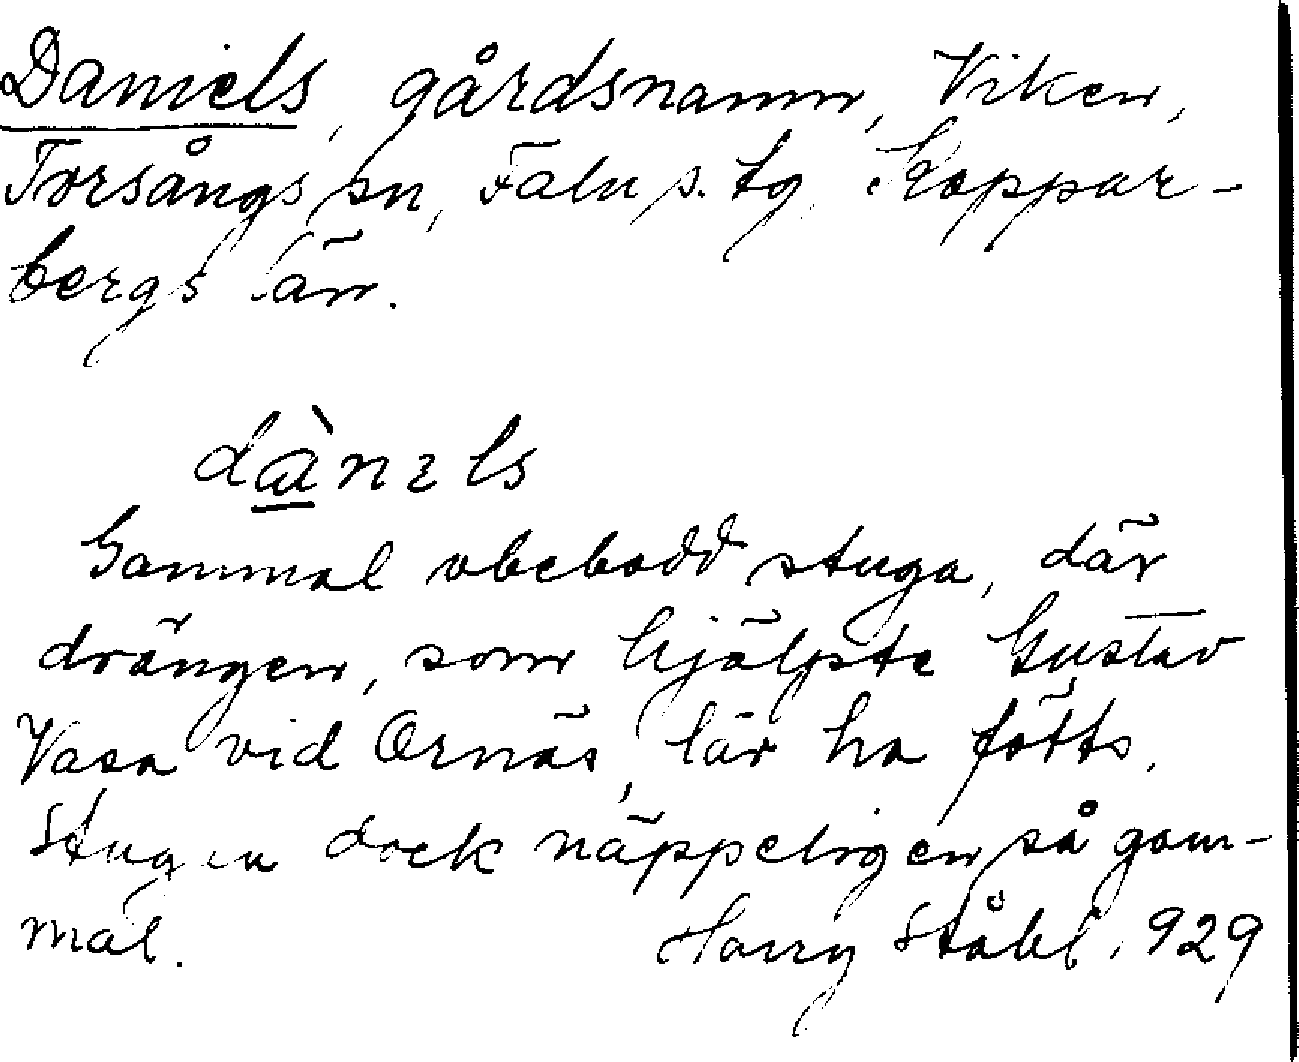 Daniels, gårdsnamn, Viken,
Torsångs sn, Falu s. tg, Koppar-
bergs län.
dànels
Gammal obebodd stuga, där
drängen, som hjälpte Gustav
Vasa vid Ornäs, lär ha fötts.
Stugan dock näppeligen så gam-
mal.
Harry Ståhl 1929